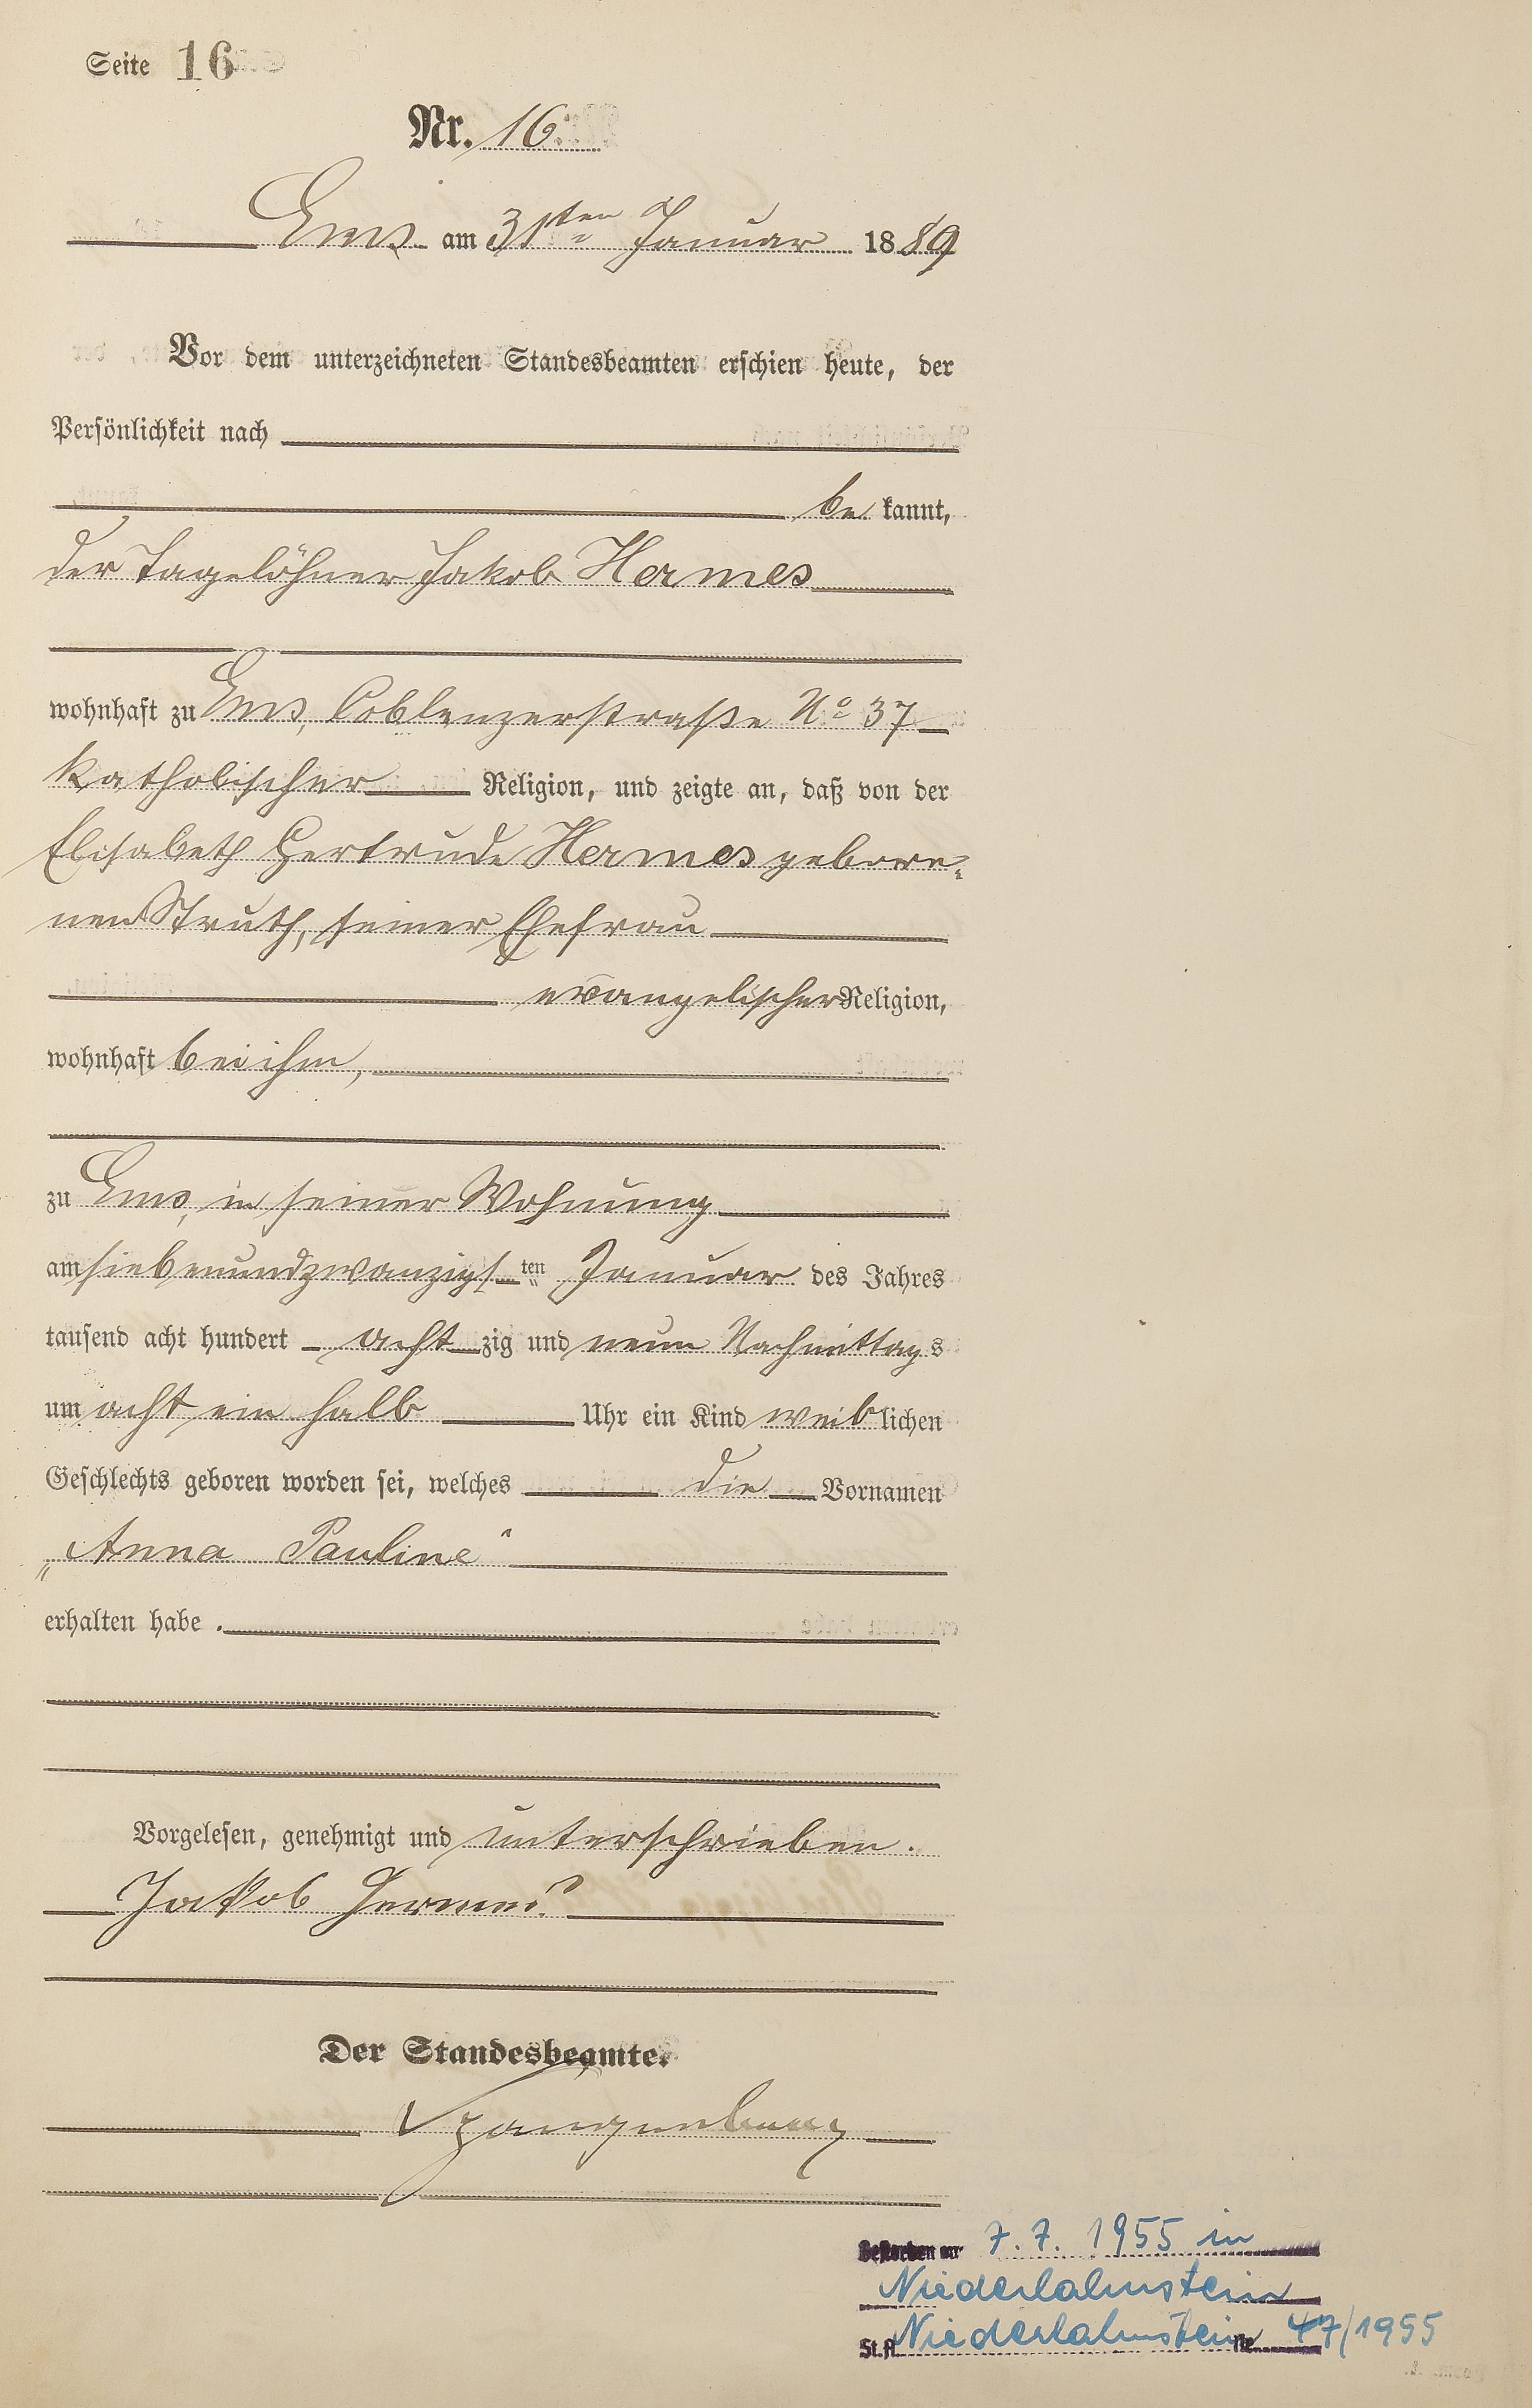 Seite 16
Nr. 16.
Ems am 31ten Januar 1889
Vor dem unterzeichneten Standesbeamten erschien heute, der
Persönlichkeit nach
be kannt,
der Tagelöhner Jakob Hermes
wohnhaft zu Ems, Coblenzerstraße No 37
katholischer Religion, und zeigte an, daß von der
Elisabeth Gertrude Hermes gebore-
nen Struth, seiner Ehefrau
evangelischer Religion,
wohnhaft bei ihm,
zu Ems, in seiner Wohnung
am siebenundzwanzigsten Januar des Jahres
tausend acht hundert achtzig und neun Nachmittags
um acht ein halb Uhr ein Kind weiblichen
Geschlechts geboren worden sei, welches die Vornamen
„Anna Pauline"
erhalten habe.
Vorgelesen, genehmigt und unterschrieben.
Jakob Hermes
Der Standesbeamte.
Spangenberg
Gestorben am 7.7.1955 in
Niederlahnstein
St.A. Niederlahnstein Nr. 47/1955